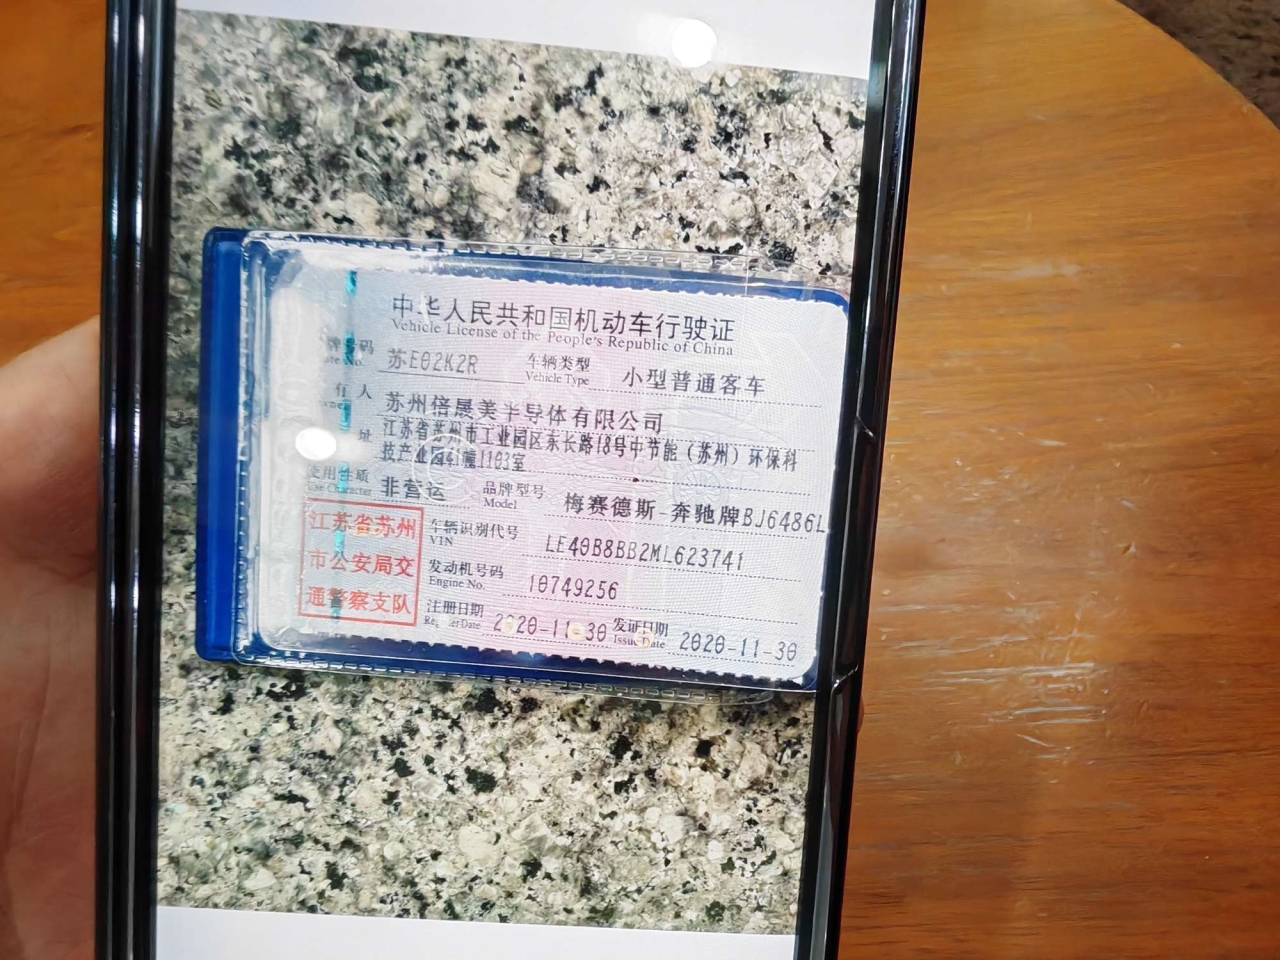 中华人民共和国机动车行驶证
Vehicle License of the People's Republic of China
牌号码 苏E02K2R 车辆类型 小型普通客车
No. Vehicle Type
有人 苏州倍晟美半导体有限公司
址 江苏省苏州市工业园区东长路18号中节能（苏州）环保科
技产业园41幢1103室
使用性质 非营运 品牌型号 梅赛德斯-奔驰牌BJ6486L
Use Character Model
江苏省苏州
市公安局交
通警察支队
车辆识别代号 LE40B8BB2ML623741
VIN
发动机号码 10749256
Engine No.
注册日期 2020-11-30 发证日期 2020-11-30
Register Date Issue Date